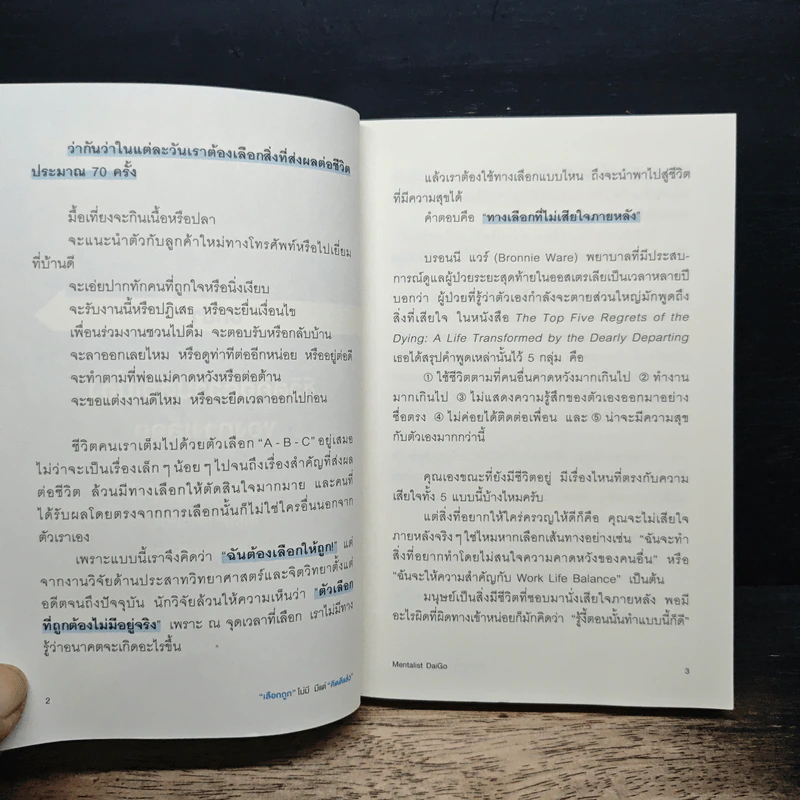 ว่ากันว่าในแต่ละวันเราต้องเลือกสิ่งที่ส่งผลต่อชีวิต
ประมาณ 70 ครั้ง
มื้อเที่ยงจะกินเนื้อหรือปลา
จะแนะนำตัวกับลูกค้าใหม่ทางโทรศัพท์หรือไปเยี่ยม
ที่บ้านดี
จะเอ่ยปากทักคนที่ถูกใจหรือนิ่งเงียบ
จะรับงานนี้หรือปฏิเสธ หรือจะยื่นเงื่อนไข
เพื่อนร่วมงานชวนไปดื่ม จะตอบรับหรือกลับบ้าน
จะลาออกเลยไหม หรือดูท่าทีต่ออีกหน่อย หรืออยู่ต่อดี
จะทำตามที่พ่อแม่คาดหวังหรือต่อต้าน
จะขอแต่งงานดีไหม หรือจะยืดเวลาออกไปก่อน
ชีวิตคนเราเต็มไปด้วยตัวเลือก "A - B - C" อยู่เสมอ
ไม่ว่าจะเป็นเรื่องเล็กๆ น้อยๆ ไปจนถึงเรื่องสำคัญที่ส่งผล
ต่อชีวิต ล้วนมีทางเลือกให้ตัดสินใจมากมาย และคนที่
ได้รับผลโดยตรงจากการเลือกนั้นก็ไม่ใช่ใครอื่นนอกจาก
ตัวเราเอง
เพราะแบบนี้เราจึงคิดว่า "ฉันต้องเลือกให้ถูก!" แต่
จากงานวิจัยด้านประสาทวิทยาศาสตร์และจิตวิทยาตั้งแต่
อดีตจนถึงปัจจุบัน นักวิจัยล้วนให้ความเห็นว่า "ตัวเลือก
ที่ถูกต้องไม่มีอยู่จริง" เพราะ ณ จุดเวลาที่เลือก เราไม่มีทาง
รู้ว่าอนาคตจะเกิดอะไรขึ้น
2
"เลือกถูก" ไม่มี มีแต่ "คิดดีแล้ว"
แล้วเราต้องใช้ทางเลือกแบบไหน ถึงจะนำพาไปสู่ชีวิต
ที่มีความสุขได้
คำตอบคือ "ทางเลือกที่ไม่เสียใจภายหลัง"
บรอนนี แวร์ (Bronnie Ware) พยาบาลที่มีประสบ-
การณ์ดูแลผู้ป่วยระยะสุดท้ายในออสเตรเลียเป็นเวลาหลายปี
บอกว่า ผู้ป่วยที่รู้ว่าตัวเองกำลังจะตายส่วนใหญ่มักพูดถึง
สิ่งที่เสียใจ ในหนังสือ The Top Five Regrets of the
Dying: A Life Transformed by the Dearly Departing
เธอได้สรุปคำพูดเหล่านั้นไว้ 5 กลุ่ม คือ
① ใช้ชีวิตตามที่คนอื่นคาดหวังมากเกินไป ② ทำงาน
มากเกินไป ③ ไม่แสดงความรู้สึกของตัวเองออกมาอย่าง
ซื่อตรง ④ ไม่ค่อยได้ติดต่อเพื่อน และ ⑤ น่าจะมีความสุข
กับตัวเองมากกว่านี้
คุณเองขณะที่ยังมีชีวิตอยู่ มีเรื่องไหนที่ตรงกับความ
เสียใจทั้ง 5 แบบนี้บ้างไหมครับ
แต่สิ่งที่อยากให้ใคร่ครวญให้ดีก็คือ คุณจะไม่เสียใจ
ภายหลังจริงๆ ใช่ไหมหากเลือกเส้นทางอย่างเช่น "ฉันจะทำ
สิ่งที่อยากทำโดยไม่สนใจความคาดหวังของคนอื่น" หรือ
"ฉันจะให้ความสำคัญกับ Work Life Balance" เป็นต้น
มนุษย์เป็นสิ่งมีชีวิตที่ชอบมานั่งเสียใจภายหลัง พอมี
อะไรผิดที่ผิดทางเข้าหน่อยก็มักคิดว่า "รู้งี้ตอนนั้นทำแบบนี้ก็ดี"
Mentalist DaiGo
3